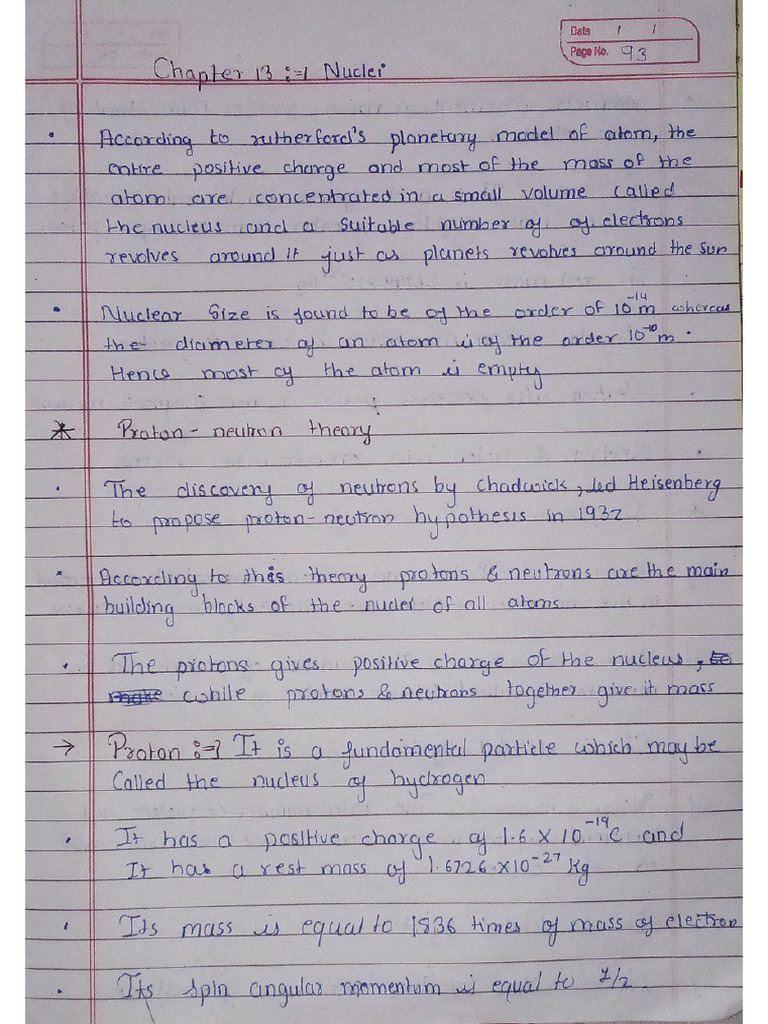 Date / /
Page No. 93
Chapter 13 :-| Nuclei
• According to rutherford's planetary model of atom, the
entire positive charge and most of the mass of the
atom are concentrated in a small volume called
the nucleus and a suitable number of of electrons
revolves around it just as planets revolves around the sun
• Nuclear Size is found to be of the order of 10⁻¹⁴m whereas
the diameter of an atom is of the order 10⁻¹⁰m.
Hence most of the atom is empty
* Proton-neutron theory
• The discovery of neutrons by Chadwick, led Heisenberg
to propose proton-neutron hypothesis in 1932
• According to this theory protons & neutrons are the main
building blocks of the nuclei of all atoms
• The protons gives positive charge of the nucleus, to
make while protons & neutrons together give it mass
→ Proton :-] It is a fundamental particle which may be
Called the nucleus of hydrogen
• It has a positive charge of 1.6 X 10⁻¹⁹C and
It has a rest mass of 1.6726 X10⁻²⁷ Kg
• Its mass is equal to 1836 times of mass of electron
• Its spin angular momentum is equal to 1/2.